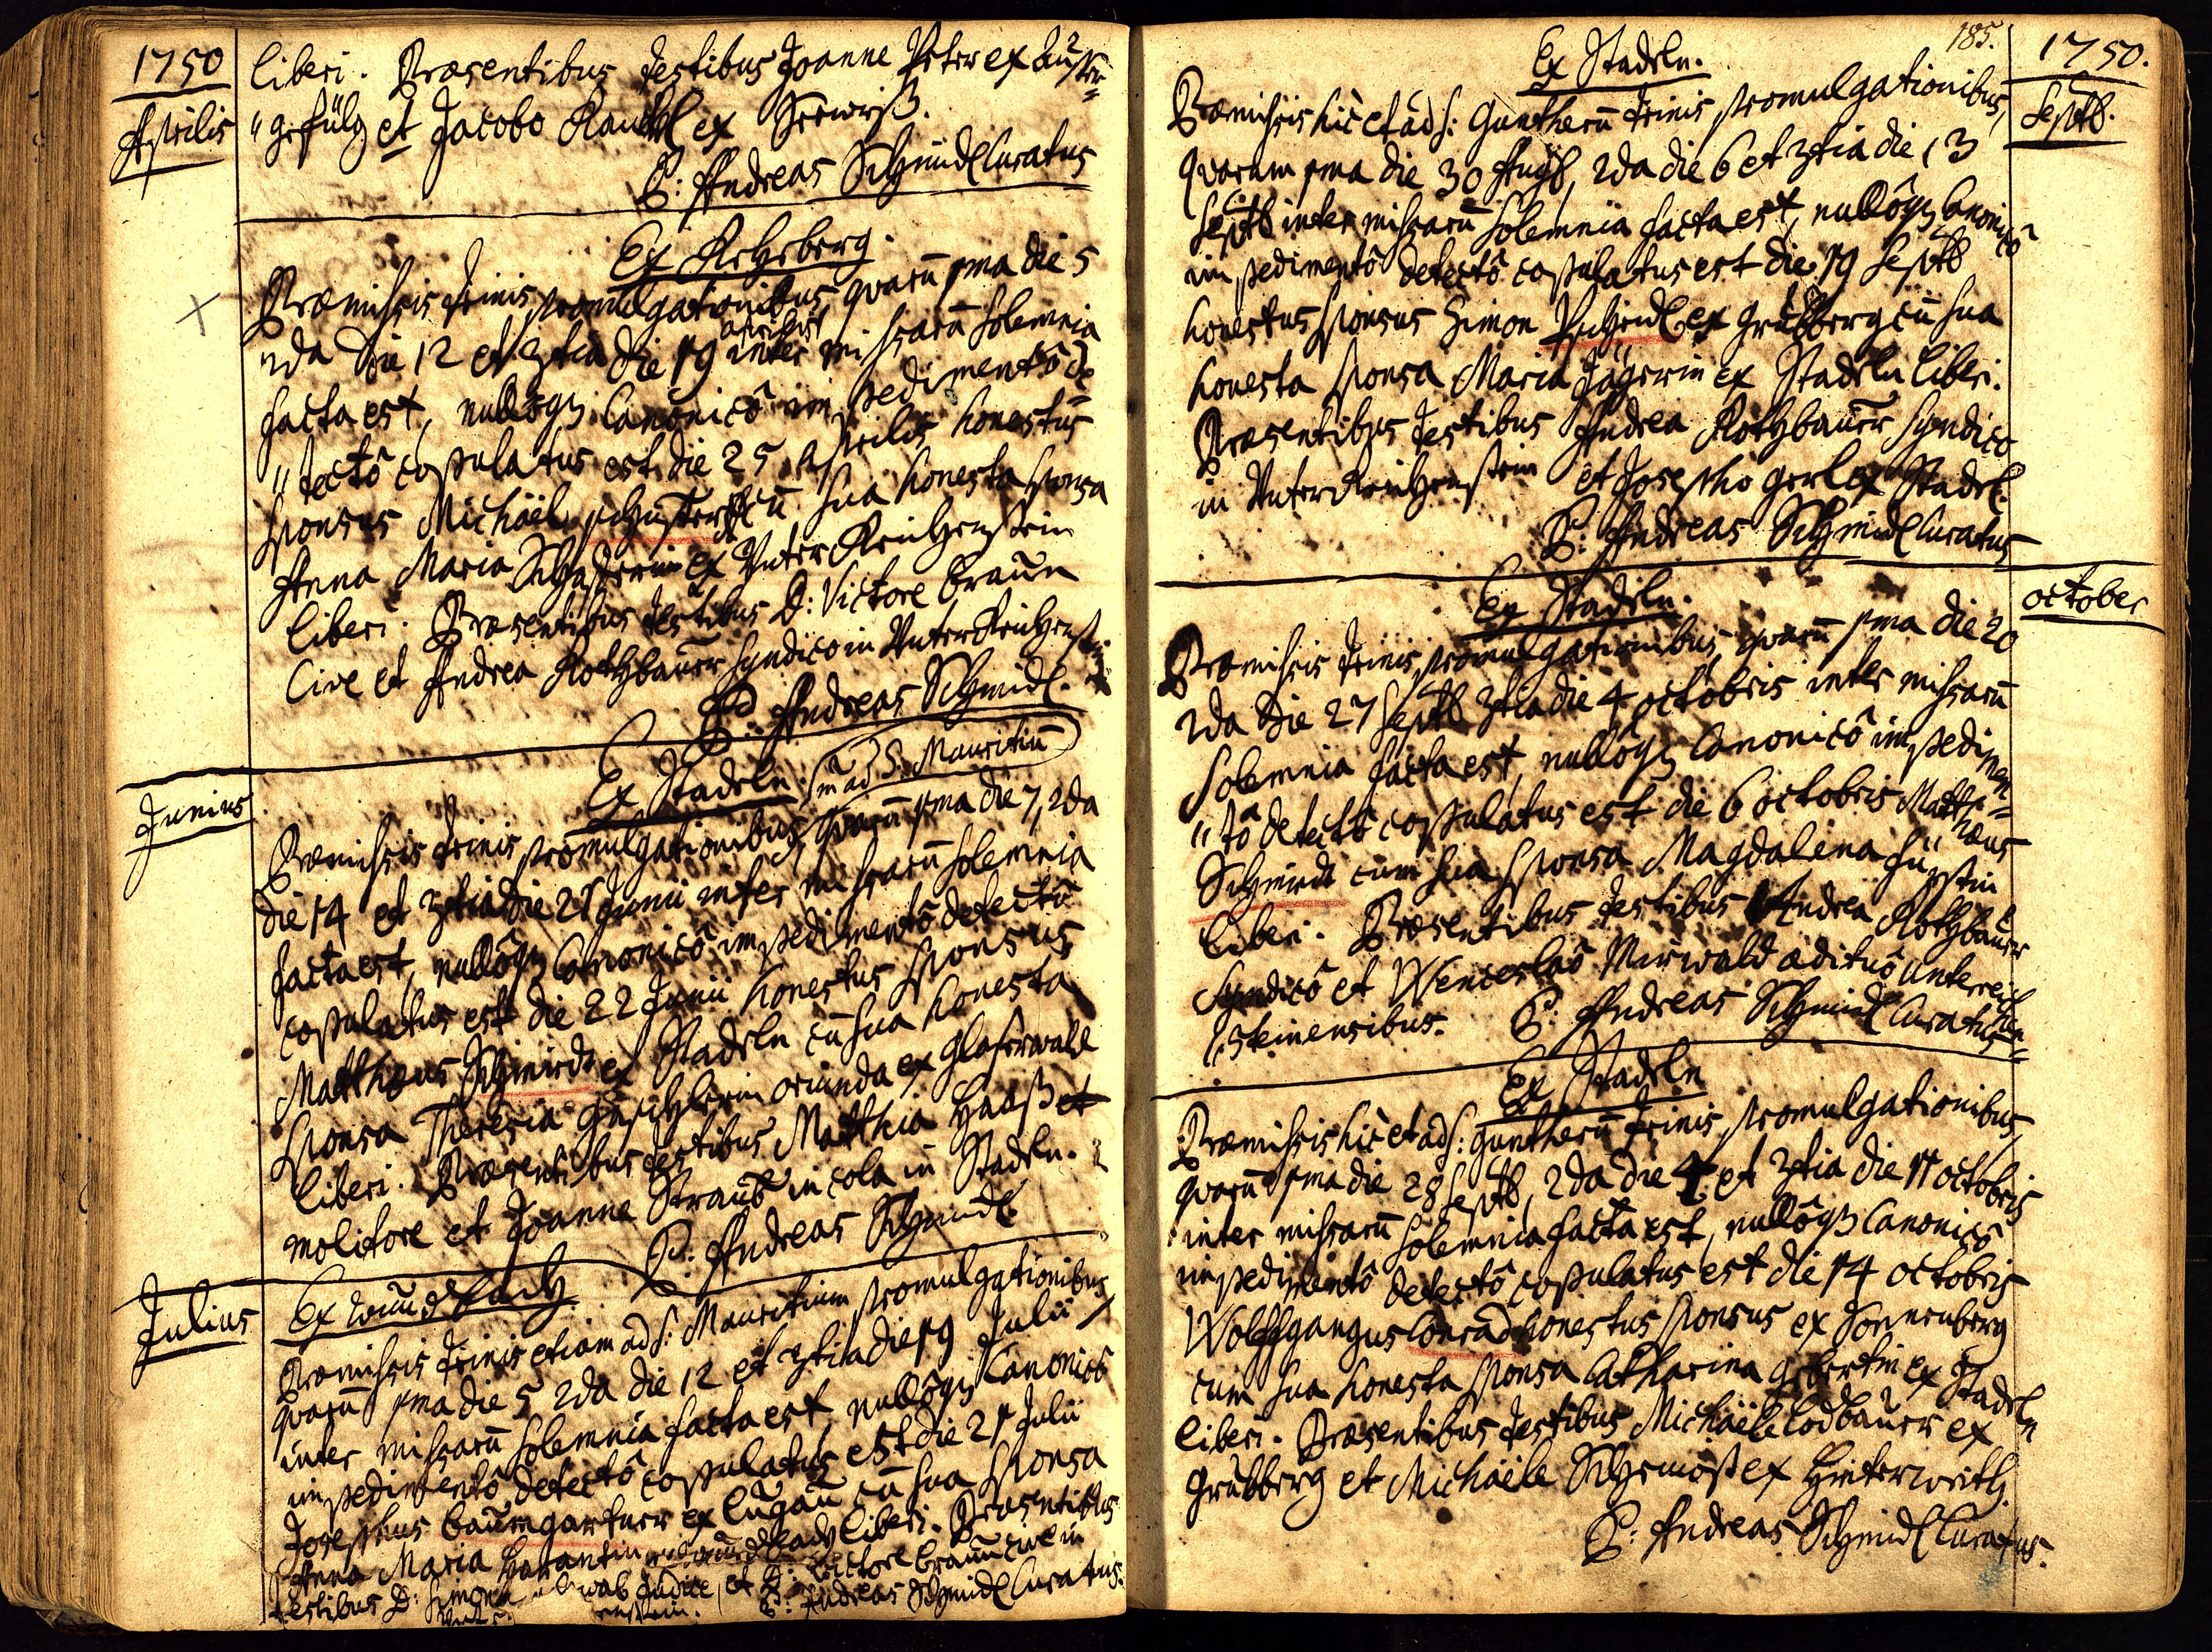 1750
Aprilis
liberi. Præsentibus testibus Joanne Peter ex
"gefülg et Jacobo Raushl ex Seewiß.
P: Andreas Schmidl Curatus
Ex Rehberg.
Præmissis trinis promulgationibus quarũ 1ma die 5
2da die 12 et 3tia die 19 aprilis inter missarũ solemnia
facta est, nullôq3 Canonicô impedimentô de
"tectô copulatus est die 25 aprilis honestus
sponsus Michäel schuster cũ sua honesta sponsa
Anna Maria ex Unter Reichenstein
liberi. Præsentibus testibus D: Victore Braun
Cive et Andrea Rothbaurr Syndico in Unter Reichenstein
P: Andreas Schmidl.
Junius
Ex Stadeln. im ad S. Mauritiũ
Præmissis trinis promulgationibus, quarũ 1ma die 7, 2da
die 14 et 3tia die 21 Junii inter missarũ solemnia
facta est, nullôq3 Canonicô impedimentô detectô
copulatus est die 22 Junii honestus sponsus
Matthæus Schmirdt ex Stadeln cũ sua honesta
sponsa Theresia Gaschlerin oriunda ex Glaserwald
liberi. Præsentibus testibus Matthia Haaß et
molitore et Joanne Straub incola in Stadeln.
P: Andreas Schmidl
Julius
Ex
Præmissis trinis etiam ad S: Mauritium promulgationibus,
quarũ 1ma die 5 2da die 12 et 3tia die 19 Julii
inter missarũ solemnia facta est, nullôq3 Canonicô
impedimentô detectô copulatus est die 21 Julii
Josephus Baumgartner ex Lugau cũ sua sponsa
Anna Maria liberi. Præsentibus
testibus D: Simone Judice, et D: Victore Braun cive in
P: Andreas Schmidl Curatus.
185.
1750.
Septb.
Ex Stadeln.
Præmissis hìc et ad S: Guntherũ trinis promulgationibus,
quarum 1ma die 30 Augst, 2da die 6 et 3tia die 13
Septb inter missarũ solemnia facta est, nullôq3 Canonicô
impedimentô detectô copulatus est die 19 Septb
honestus sponsus Simon Pscheidl ex Grubberg cũ sua
honesta sponsa Maria Jägerin ex Stadeln liberi.
Præsentibus testibus Andrea Rothbaurr Syndico
in Unter Reichenstein et Josepho Gerl ex Stadel.
P: Andreas Schmidl Curatus
october
Ex Stadeln.
Præmissis trinis promulgationibus, quarũ 1ma die 20
2da die 27 Septb 3tia die 4 octobris inter missarũ
solemnia facta est, nullôq3 Canonicô impedimen=
"tô detectô copulatus est die 6 octobris Matthæus
Schmirdt cum sua sponsa Magdalena Fürstin
liberi. Præsentibus testibus Andrea Rothbaurr
Syndicô et Wenceslaô Mirwald ædituô Unterreichen=
steinensibus. P: Andreas Schmidl Curatus
Ex Stadeln
Præmissis hìc et ad S: Guntherũ trinis promulgationibus
quarũ 1ma die 28 Septb, 2da die 4 et 3tia die 11 octobris
inter missarũ solemnia facta est, nullôq3 Canonicô
impedimentô detectô copulatus est die 14 octobris
Wolffgangus Conrad honestus sponsus ex Sonnenberg
cum sua honesta sponsa Catharina Gebertin ex Stadeln
liberi. Præsentibus testibus Michäele Lodbaurr ex
Grubberg et Michäele ex Hinterwaith.
P: Andreas Schmidl Curatus.